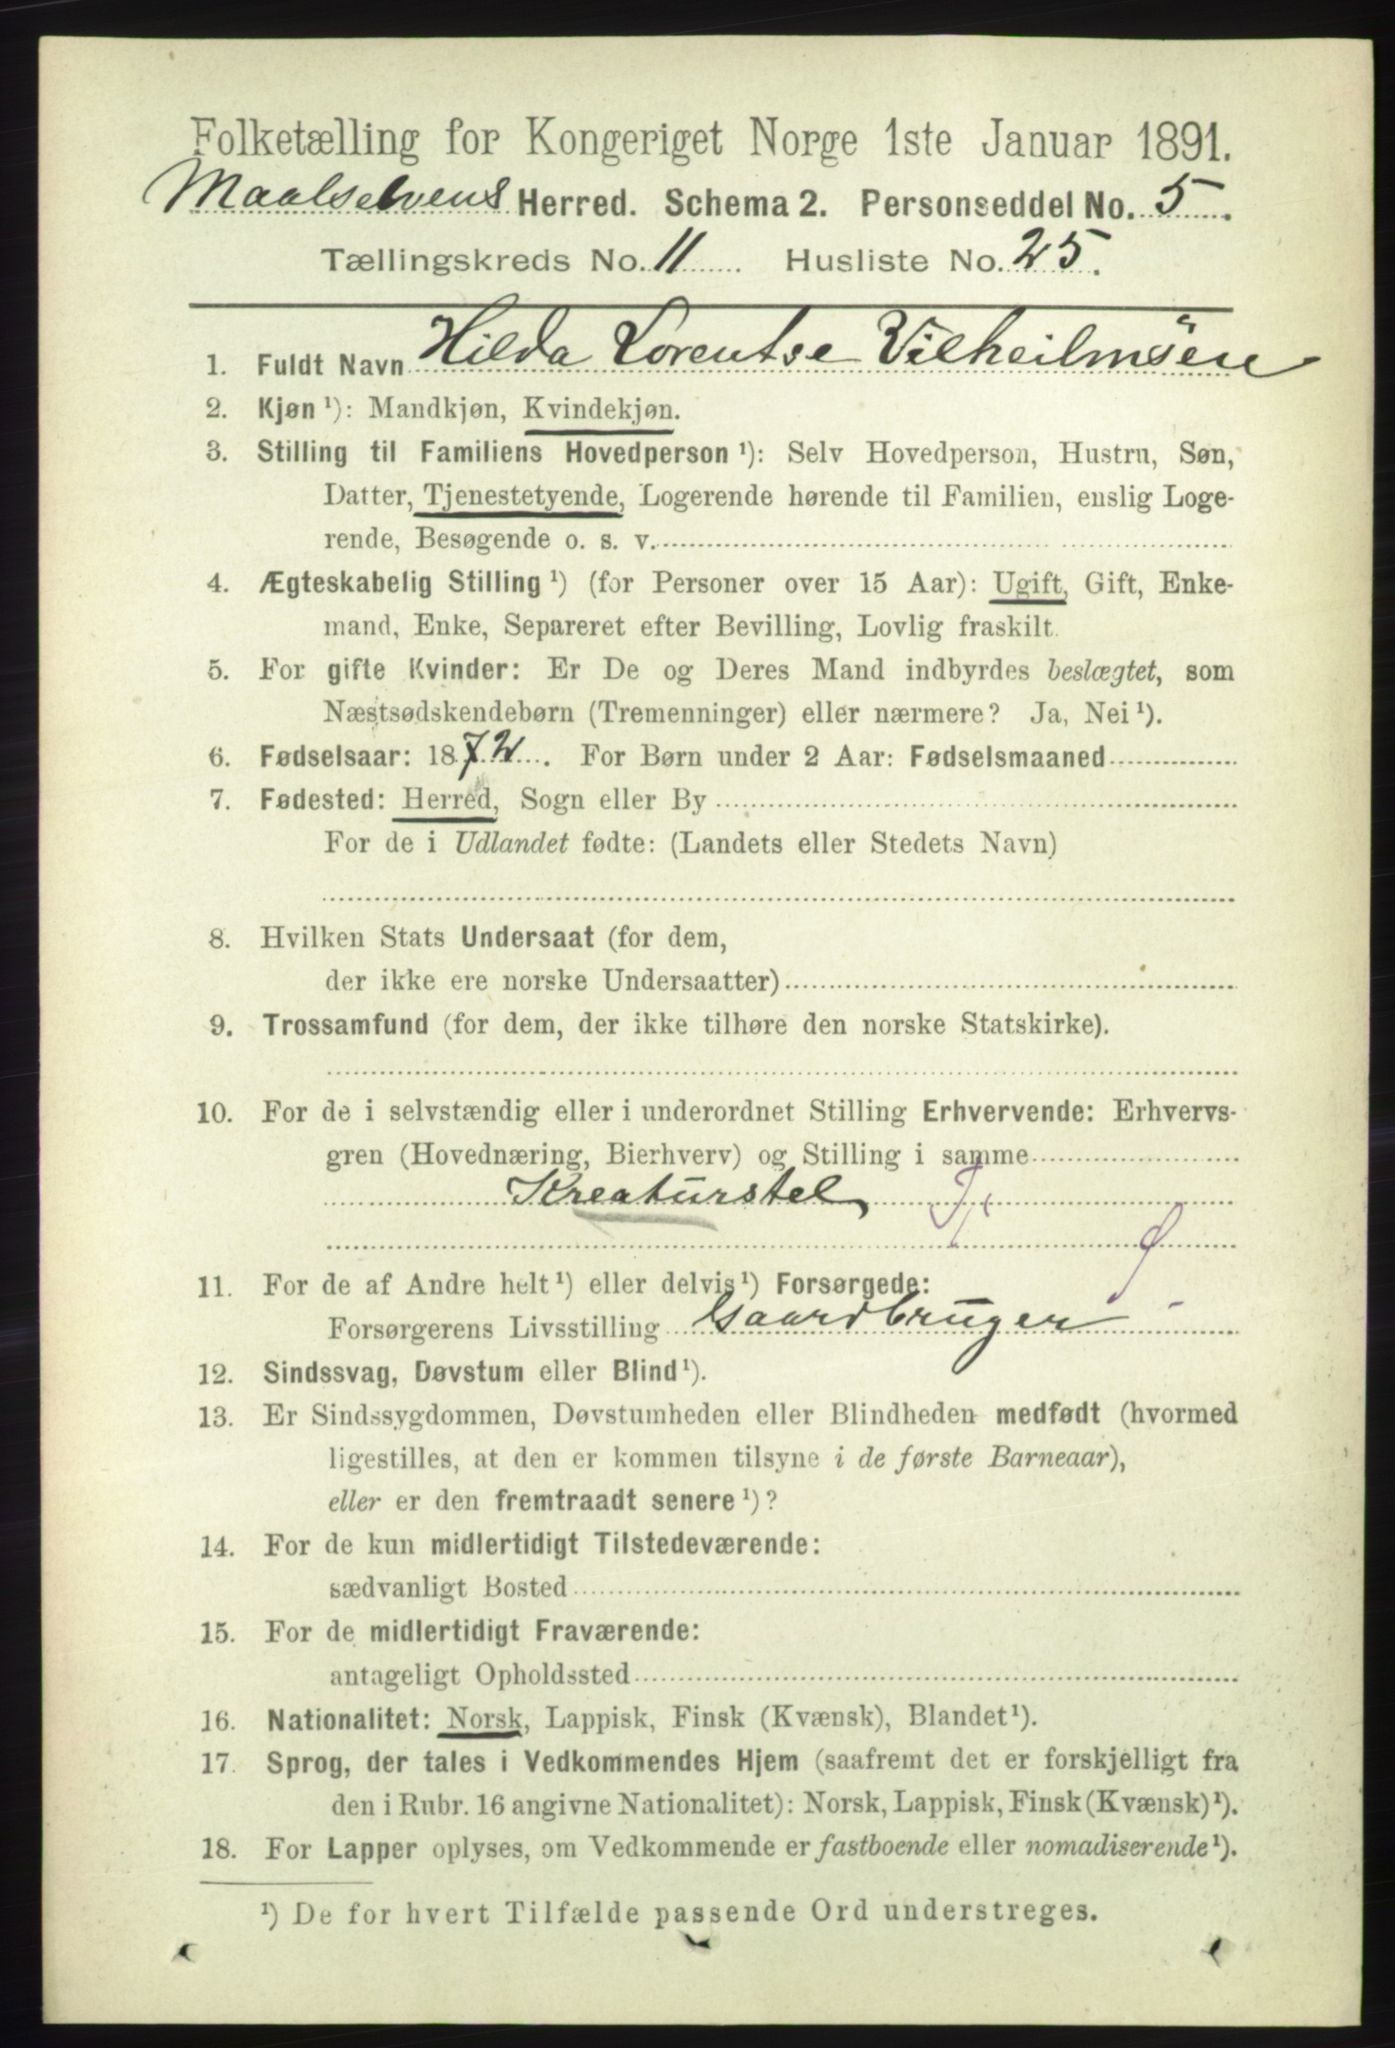 Folketælling for Kongeriget Norge 1ste Januar 1891.
Maalselvens Herred. Schema 2. Personseddel No. 5.
Tællingskreds No. 11 Husliste No. 25.
1. Fuldt Navn Hilda Lorentse Vilheilmsen
2. Kjøn ¹): Mandkjøn, Kvindekjøn.
3. Stilling til Familiens Hovedperson ¹): Selv Hovedperson, Hustru, Søn,
Datter, Tjenestetyende, Logerende hørende til Familien, enslig Loge-
rende, Besøgende o. s. v.
4. Ægteskabelig Stilling ¹) (for Personer over 15 Aar): Ugift, Gift, Enke-
mand, Enke, Separeret efter Bevilling, Lovlig fraskilt.
5. For gifte Kvinder: Er De og Deres Mand indbyrdes beslægtet, som
Næstsødskendebørn (Tremenninger) eller nærmere? Ja, Nei ¹).
6. Fødselsaar: 1872. For Børn under 2 Aar: Fødselsmaaned
7. Fødested: Herred, Sogn eller By
For de i Udlandet fødte: (Landets eller Stedets Navn)
8. Hvilken Stats Undersaat (for dem,
der ikke ere norske Undersaatter)
9. Trossamfund (for dem, der ikke tilhøre den norske Statskirke).
10. For de i selvstændig eller i underordnet Stilling Erhvervende: Erhvervs-
gren (Hovednæring, Bierhverv) og Stilling i samme
Kreaturstel,
11. For de af Andre helt ¹) eller delvis ¹) Forsørgede:
Forsørgerens Livsstilling Gaardbruger
12. Sindssvag, Døvstum eller Blind ¹).
13. Er Sindssygdommen, Døvstumheden eller Blindheden medfødt (hvormed
ligestilles, at den er kommen tilsyne i de første Barneaar),
eller er den fremtraadt senere ¹)?
14. For de kun midlertidigt Tilstedeværende:
sædvanligt Bosted
15. For de midlertidigt Fraværende:
antageligt Opholdssted
16. Nationalitet: Norsk, Lappisk, Finsk (Kvænsk), Blandet ¹).
17. Sprog, der tales i Vedkommendes Hjem (saafremt det er forskjelligt fra
den i Rubr. 16 angivne Nationalitet): Norsk, Lappisk, Finsk (Kvænsk) ¹).
18. For Lapper oplyses, om Vedkommende er fastboende eller nomadiserende ¹).
¹) De for hvert Tilfælde passende Ord understreges.